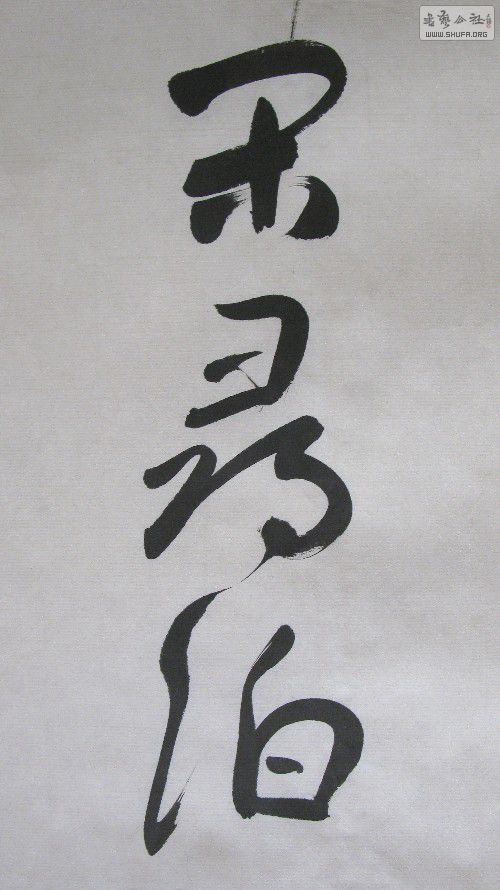 書藝公社
WWW.SHUFA.ORG
閑
尋
伯